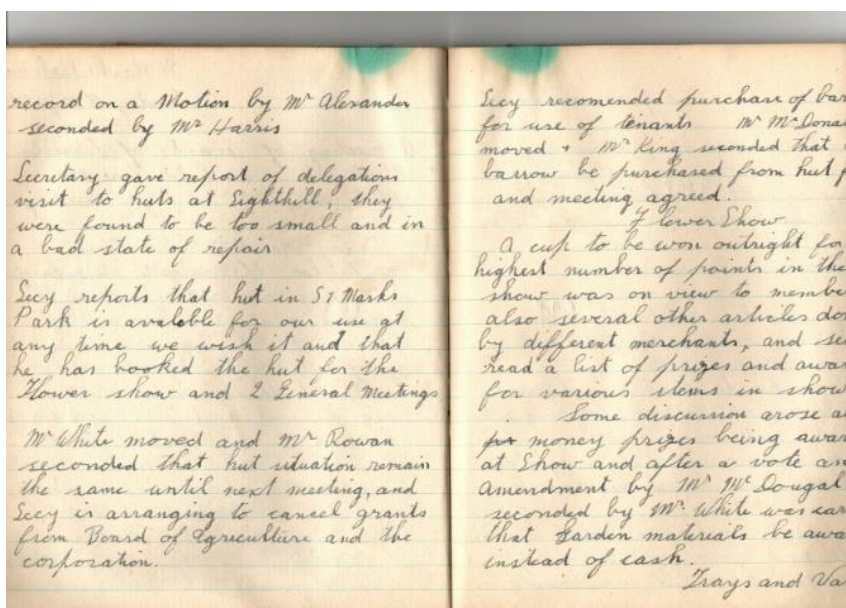 record on a Motion by Mr Alexander
seconded by Mr Harris
Secretary gave report of delegations
visit to huts at Sighthill, they
were found to be too small and in
a bad state of repair
Secy reports that hut in St Marks
Park is avalable for our use at
any time we wish it and that
he has booked the hut for the
Flower show and 2 General Meetings
Mr White moved and Mr Rowan
seconded that hut situation remain
the same until next meeting, and
Secy is arranging to cancel grants
from Board of Agreculture and the
corporation.
Secy recomended purchase of bar
for use of tenants Mr McDona
moved + Mr King seconded that
barrow be purchased from hut f
and meeting agreed.
Flower Show
A cup to be won outright for
highest number of points in the
show was on view to membe
also several other articles do
by different merchants, and se
read a list of prizes and awa
for various items in show
Some discussion arose a
money prizes being awar
at Show and after a vote an
Amendment by Mr McDougal
seconded by Mr White was car
that Garden materials be awa
instead of cash.
Trays and Va